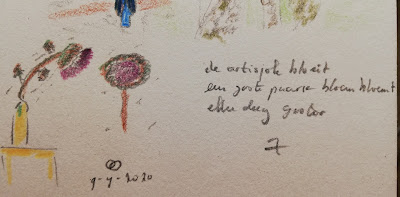 de artisjok bloeit
een grote paarse bloem bloemt
elke dag groter
7
9-7-2020